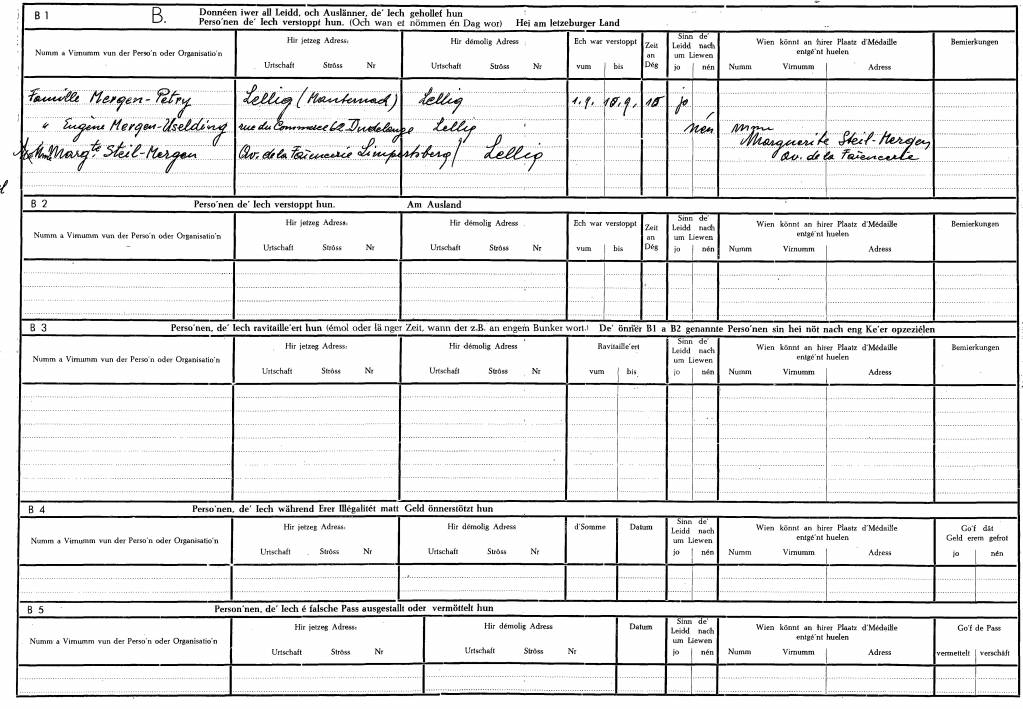 B 1 B. Donnéen iwer all Leidd, och Auslänner, de' Iech gehollef hun
Perso'nen de' Iech verstoppt hun. (Och wan et nömmen én Dag wor) Hei am letzeburger Land
Numm a Virnumm vun der Perso'n oder Organisatio'n Hir jetzeg Adress: Hir démolig Adress Ech war verstoppt Zeit an Dég Sinn de' Leidd nach um Liewen Wien könnt an hirer Plaatz d'Médaille entgé'nt huelen Bemierkungen
Urtschaft Ströss Nr Urtschaft Ströss Nr vum bis jo nén Numm Virnumm Adress
Famille Mergen-Petry Lellig (Manternach) Lellig 1.9. 15.9. 15 jo
" Eugène Mergen-Uselding rue du Commerce 62 Dudelange Lellig nén Mme
Marguerite Steil-Mergen
Margte. Steil-Mergen Av. de la Faïencerie Limpertsberg Lellig av. de la Faïencerie
B 2 Perso'nen de' Iech verstoppt hun. Am Ausland
Numm a Virnumm vun der Perso'n oder Organisatio'n Hir jetzeg Adress: Hir démolig Adress Ech war verstoppt Zeit an Dég Sinn de' Leidd nach um Liewen Wien könnt an hirer Plaatz d'Médaille entgé'nt huelen Bemierkungen
Urtschaft Ströss Nr Urtschaft Ströss Nr vum bis jo nén Numm Virnumm Adress
B 3 Perso'nen, de' Iech ravitaille'ert hun (émol oder länger Zeit, wann der z.B. an engem Bunker wort.) De' önner B1 a B2 genannte Perso'nen sin hei nöt nach eng Ke'er opzeziélen
Numm a Virnumm vun der Perso'n oder Organisatio'n Hir jetzeg Adress: Hir démolig Adress Ravitaille'ert Sinn de' Leidd nach um Liewen Wien könnt an hirer Plaatz d'Médaille entgé'nt huelen Bemierkungen
Urtschaft Ströss Nr Urtschaft Ströss Nr vum bis jo nén Numm Virnumm Adress
B 4 Perso'nen, de' Iech während Erer Illégalitét matt Geld önnerstötzt hun
Numm a Virnumm vun der Perso'n oder Organisatio'n Hir jetzeg Adress: Hir démolig Adress d'Somme Datum Sinn de' Leidd nach um Liewen Wien könnt an hirer Plaatz d'Médaille entgé'nt huelen Go'f dât Geld erem gefrot
Urtschaft Ströss Nr Urtschaft Ströss Nr jo nén Numm Virnumm Adress jo nén
B 5 Person'nen, de' Iech é falsche Pass ausgestallt oder vermöttelt hun
Numm a Virnumm vun der Perso'n oder Organisatio'n Hir jetzeg Adress: Hir démolig Adress Datum Sinn de' Leidd nach um Liewen Wien könnt an hirer Plaatz d'Médaille entgé'nt huelen Go'f de Pass
Urtschaft Ströss Nr Urtschaft Ströss Nr jo nén Numm Virnumm Adress vermettelt verschäft